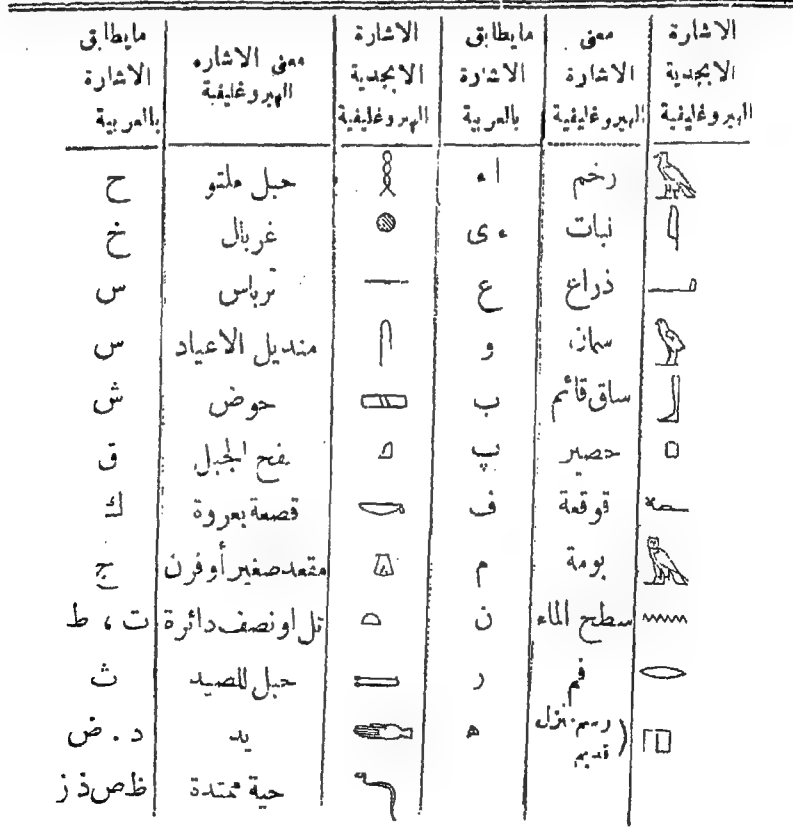 الاشارة الابجدية الهيروغليفية معنى الاشارة الهيروغليفية مايطابق الاشارة بالعربية الاشارة الابجدية الهيروغليفية معنى الاشاره الهيروغليفية مايطابق الاشارة بالعربية
رخم اء حبل ملتو ح
نبات ء ى غربال خ
ذراع ع ترباس س
سمان و منديل الاعياد س
ساق قائم ب حوض ش
حصير پ سفح الجبل ق
قوقعة ف قصعة بعروة ك
بومة م مقعد صغير أو فرن ج
سطح الماء ن تل او نصف دائرة ت ، ط
فم ر حبل للصيد ث
رسم منزل قديم ه يد د . ض
حية ممتدة ظ ص ذ ز